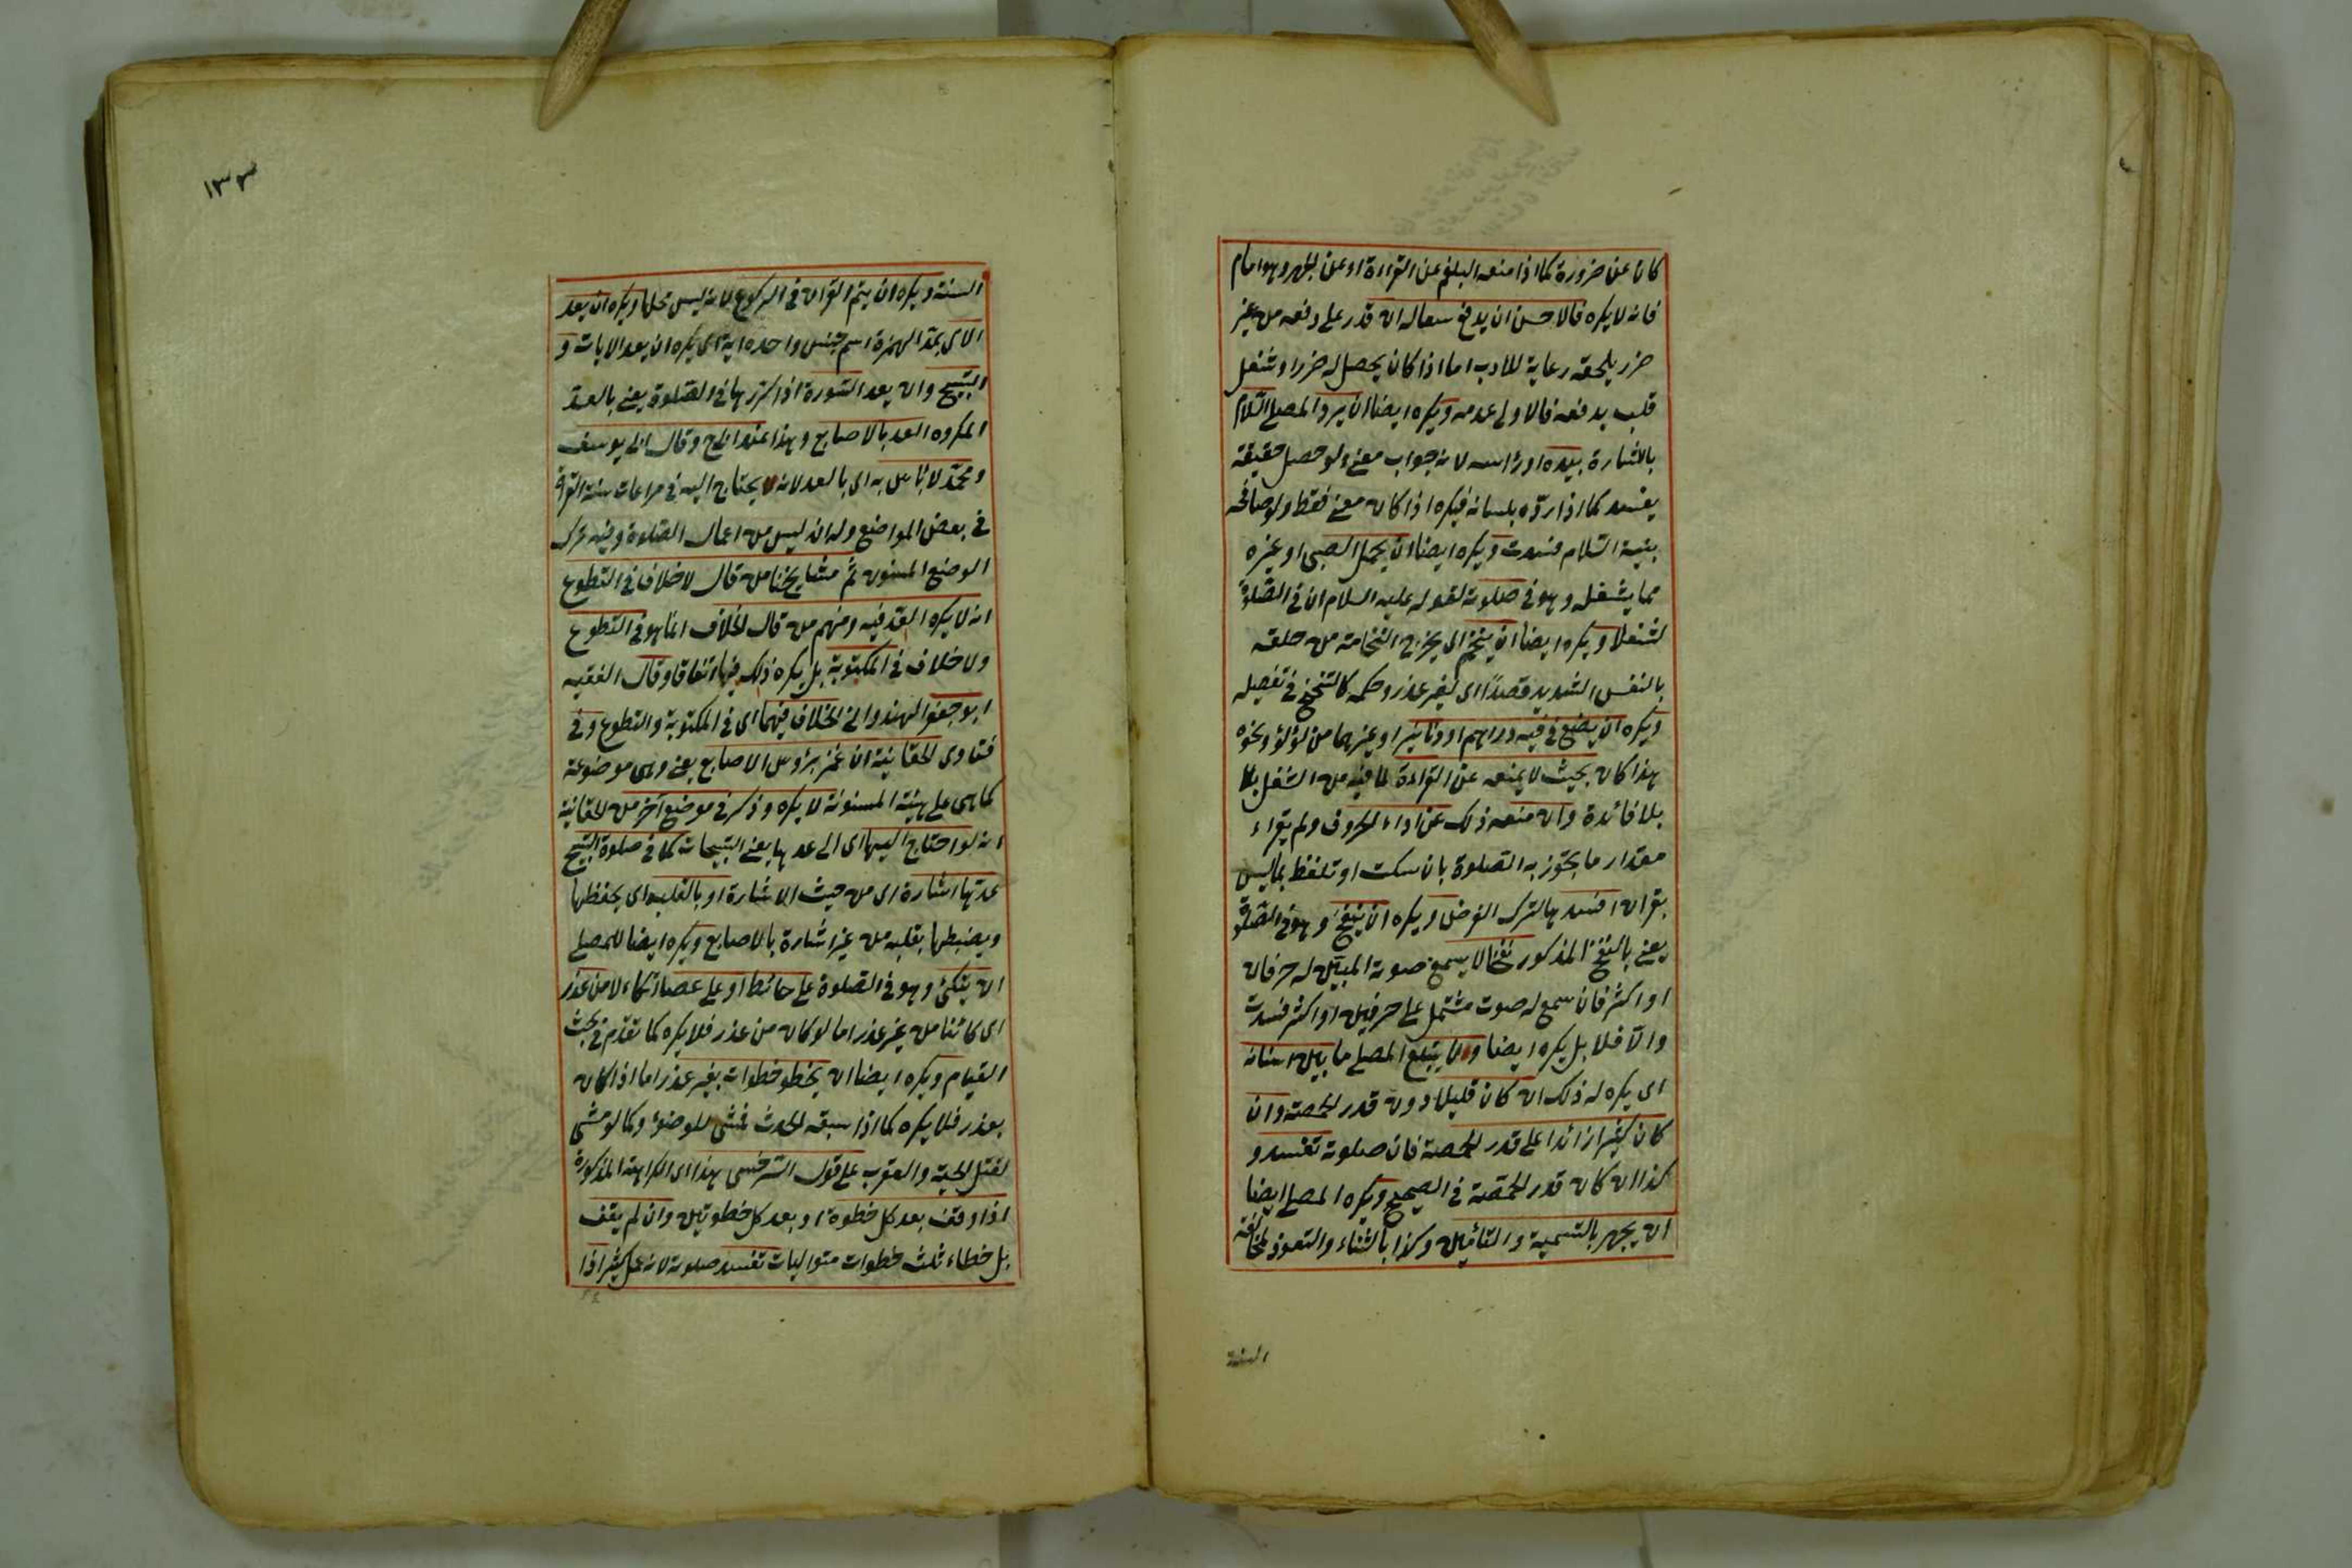 كان عن ضرورة كما اذا منعه البلغم عن القراءة او عن الجهر وهو امام
فانه لا يكره فالاحسن ان يدفع سعاله ان قدر على دفعه من غير
ضرر يلحقه رعاية للادب اما اذا كان يحصل له ضرر او شغل
قلب بدفعه فالاولى عدمه ويكره ايضا ان يرد المصلى السّلام
بالاشارة بيده او رأسه لانه جواب معنى ولو حصل حقيقة
يفسد كما اذا ردّه بلسانه فيكره اذا كان معنى فقط ولو صافحه
بنية السّلام فسدت ويكره ايضا ان يحمل الصبى او غيره
مما يشغله وهو فى صلوته لقوله عليه السلام ان فى الصّلوة
لشغلا ويكره ايضا ان يتنخم اى يخرج النخامة من حلقه
بالنفس الشديد قصدًا اى لغير عذر وحكمه كالتنحنح فى تفصيله
ويكره ان يضع فى فيه دراهم او دنانير او غيرهما من لؤلؤ ونحوه
هذا كان بحيث لا يمنعه عن القراءة لما فيه من الشغل بلا
بلا فائدة وان منعه ذلك عن اداء الحروف ولم يقراء
مقدار ما يجوز به الصّلوة بان سكت او تلفظ بما ليس
بقران افسدها لترك الفرض ويكره ان ينفخ وهو فى الصّلوة
يعنى بالنفخ المذكور نفخا لا يسمع صوته المبيّن له حرفان
او اكثر فان سمع له صوت مشتمل على حرفين او اكثر فسدت
والّا فلا بل يكره ايضا وان يبتلع المصلى ما بين اسنانه
اى يكره له ذلك ان كان قليلا دون قدر الحمصة وان
كان كثيرا زائدا على قدر الحمصة فان صلوته تفسد و
كذا ان كان قدر الحمّصة فى الصحيح ويكره المصلى ايضا
ان يجهر بالتسمية والتأمين وكذا بالثناء والتعوذ لمخالفة
السنة
١٣٣
السنة ويكره ان يتم القران فى الركوع لانه ليس محلها ويكره ان يعد
الآى بمدّ الهمزة اسم جنس واحده اية اى يكره ان يعد الايات و
التسبيح وان يعد السّورة اذا كرّرها فى الصّلوة يعنى بالعدّ
المكروه العد بالاصابع وهذا عند ابى ح وقال ابى يوسف
ومحمّد لا بأس به اى بالعد لانه يحتاج اليه فى مراعات سنة القراة
فى بعض المواضع وله انه ليس من اعمال الصّلوة وفيه ترك
الوضع المسنون ثمّ مشايخنا من قال لا خلاف فى التّطوع
انه لا يكره العدّ فيه ومنهم من قال الخلاف انّما هو فى التطوع
ولا خلاف فى المكتوبة بل يكره ذلك فيها اتفاقا وقال الفقيه
ابو جعفر الهندوانى الخلاف فيهما اى فى المكتوبة والتطوع وفى
فتاوى الخقانية ان غمز برؤس الاصابع يعنى وهى موضوعة
كما هى على هيئة المسنونة لا يكره وذكر فى موضع آخر من الخقانية
انه لو احتاج اليها اى الى عدها يعنى التسبيحات كما فى صلوة التسبيح
عدّها اشارة اى من حيث الاشارة او بالقلب اى يحفظها
ويضبطها بقلبه من غير اشارة بالاصابع ويكره ايضا للمصلى
ان يتكئ وهو فى الصّلوة على حائط او على عصا اتكاء لا من عذر
اى كائنا من غير عذر اما لو كان من عذر فلا يكره كما تقدّم فى بحث
القيام ويكره ايضا ان يخطو خطوات بغير عذر اما اذا كان
بعذر فلا يكره كما اذا سبقه الحدث فمشى للوضوء وكما لو مشى
لقتل الحية والعقرب على قول السّرخسى هذا اى الكراهة المذكورة
اذا وقف بعد كل خطوة او بعد كل خطوتين وان لم يقف
بل خطاء ثلث خطوات متواليات تفسد صلوته لانه عمل كثير اذا